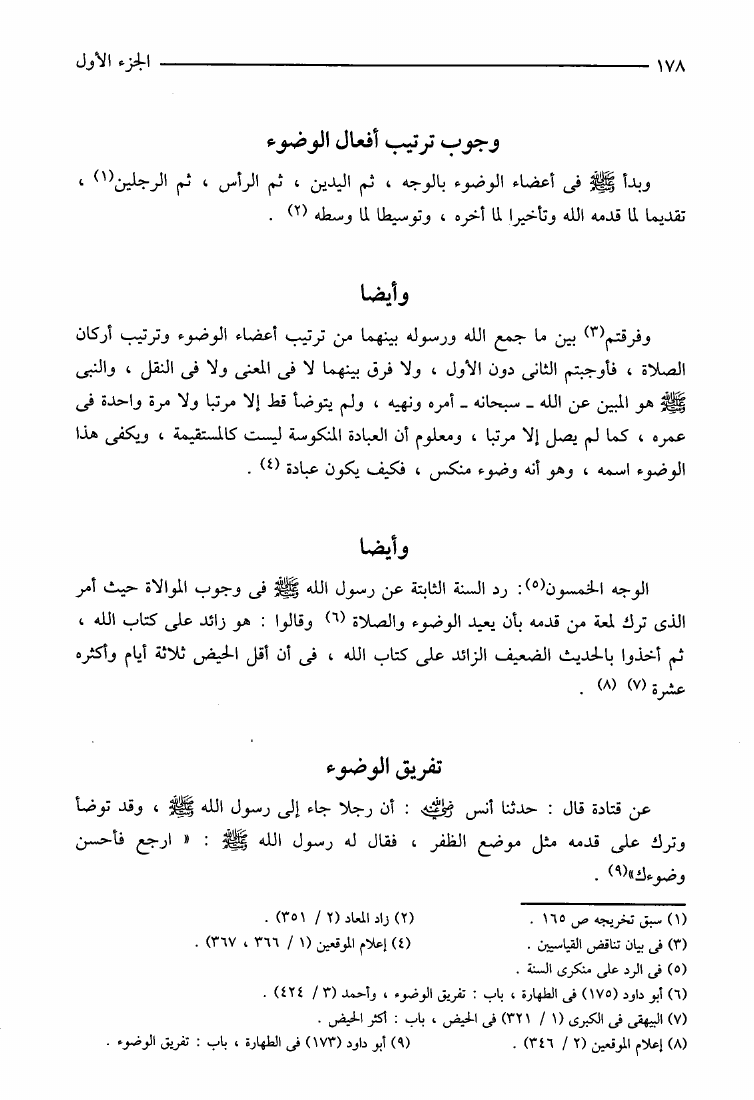 ١٧٨ ــــــــــــــــــــــــــــــ الجزء الأول
وجوب ترتيب أفعال الوضوء
وبدأ ﷺ فى أعضاء الوضوء بالوجه ، ثم اليدين ، ثم الرأس ، ثم الرجلين(١) ،
تقديما لما قدمه الله وتأخيرا لما أخره ، وتوسيطا لما وسطه (٢) .
وأيضا
وفرقتم(٣) بين ما جمع الله ورسوله بينهما من ترتيب أعضاء الوضوء وترتيب أركان
الصلاة ، فأوجبتم الثانى دون الأول ، ولا فرق بينهما لا فى المعنى ولا فى النقل ، والنبى
ﷺ هو المبين عن الله ـ سبحانه ـ أمره ونهيه ، ولم يتوضأ قط إلا مرتبا ولا مرة واحدة فى
عمره ، كما لم يصل إلا مرتبا ، ومعلوم أن العبادة المنكوسة ليست كالمستقيمة ، ويكفى هذا
الوضوء اسمه ، وهو أنه وضوء منكس ، فكيف يكون عبادة (٤) .
وأيضا
الوجه الخمسون(٥) : رد السنة الثابتة عن رسول الله ﷺ فى وجوب الموالاة حيث أمر
الذى ترك لمعة من قدمه بأن يعيد الوضوء والصلاة (٦) وقالوا : هو زائد على كتاب الله ،
ثم أخذوا بالحديث الضعيف الزائد على كتاب الله ، فى أن أقل الحيض ثلاثة أيام وأكثره
عشرة (٧) (٨) .
تفريق الوضوء
عن قتادة قال : حدثنا أنس رضي الله عنه : أن رجلا جاء إلى رسول الله ﷺ ، وقد توضأ
وترك على قدمه مثل موضع الظفر ، فقال له رسول الله ﷺ : « ارجع فأحسن
وضوءك»(٩) .
(١) سبق تخريجه ص ١٦٥ . (٢) زاد المعاد (٢ / ٣٥١) .
(٣) فى بيان تناقض القياسيين . (٤) إعلام الموقعين (١ / ٣٦٦ ، ٣٦٧) .
(٥) فى الرد على منكرى السنة .
(٦) أبو داود (١٧٥) فى الطهارة ، باب : تفريق الوضوء ، وأحمد (٣ / ٤٢٤) .
(٧) البيهقى فى الكبرى (١ / ٣٢١) فى الحيض ، باب : أكثر الحيض .
(٨) إعلام الموقعين (٢ / ٣٤٦) . (٩) أبو داود (١٧٣) فى الطهارة ، باب : تفريق الوضوء .